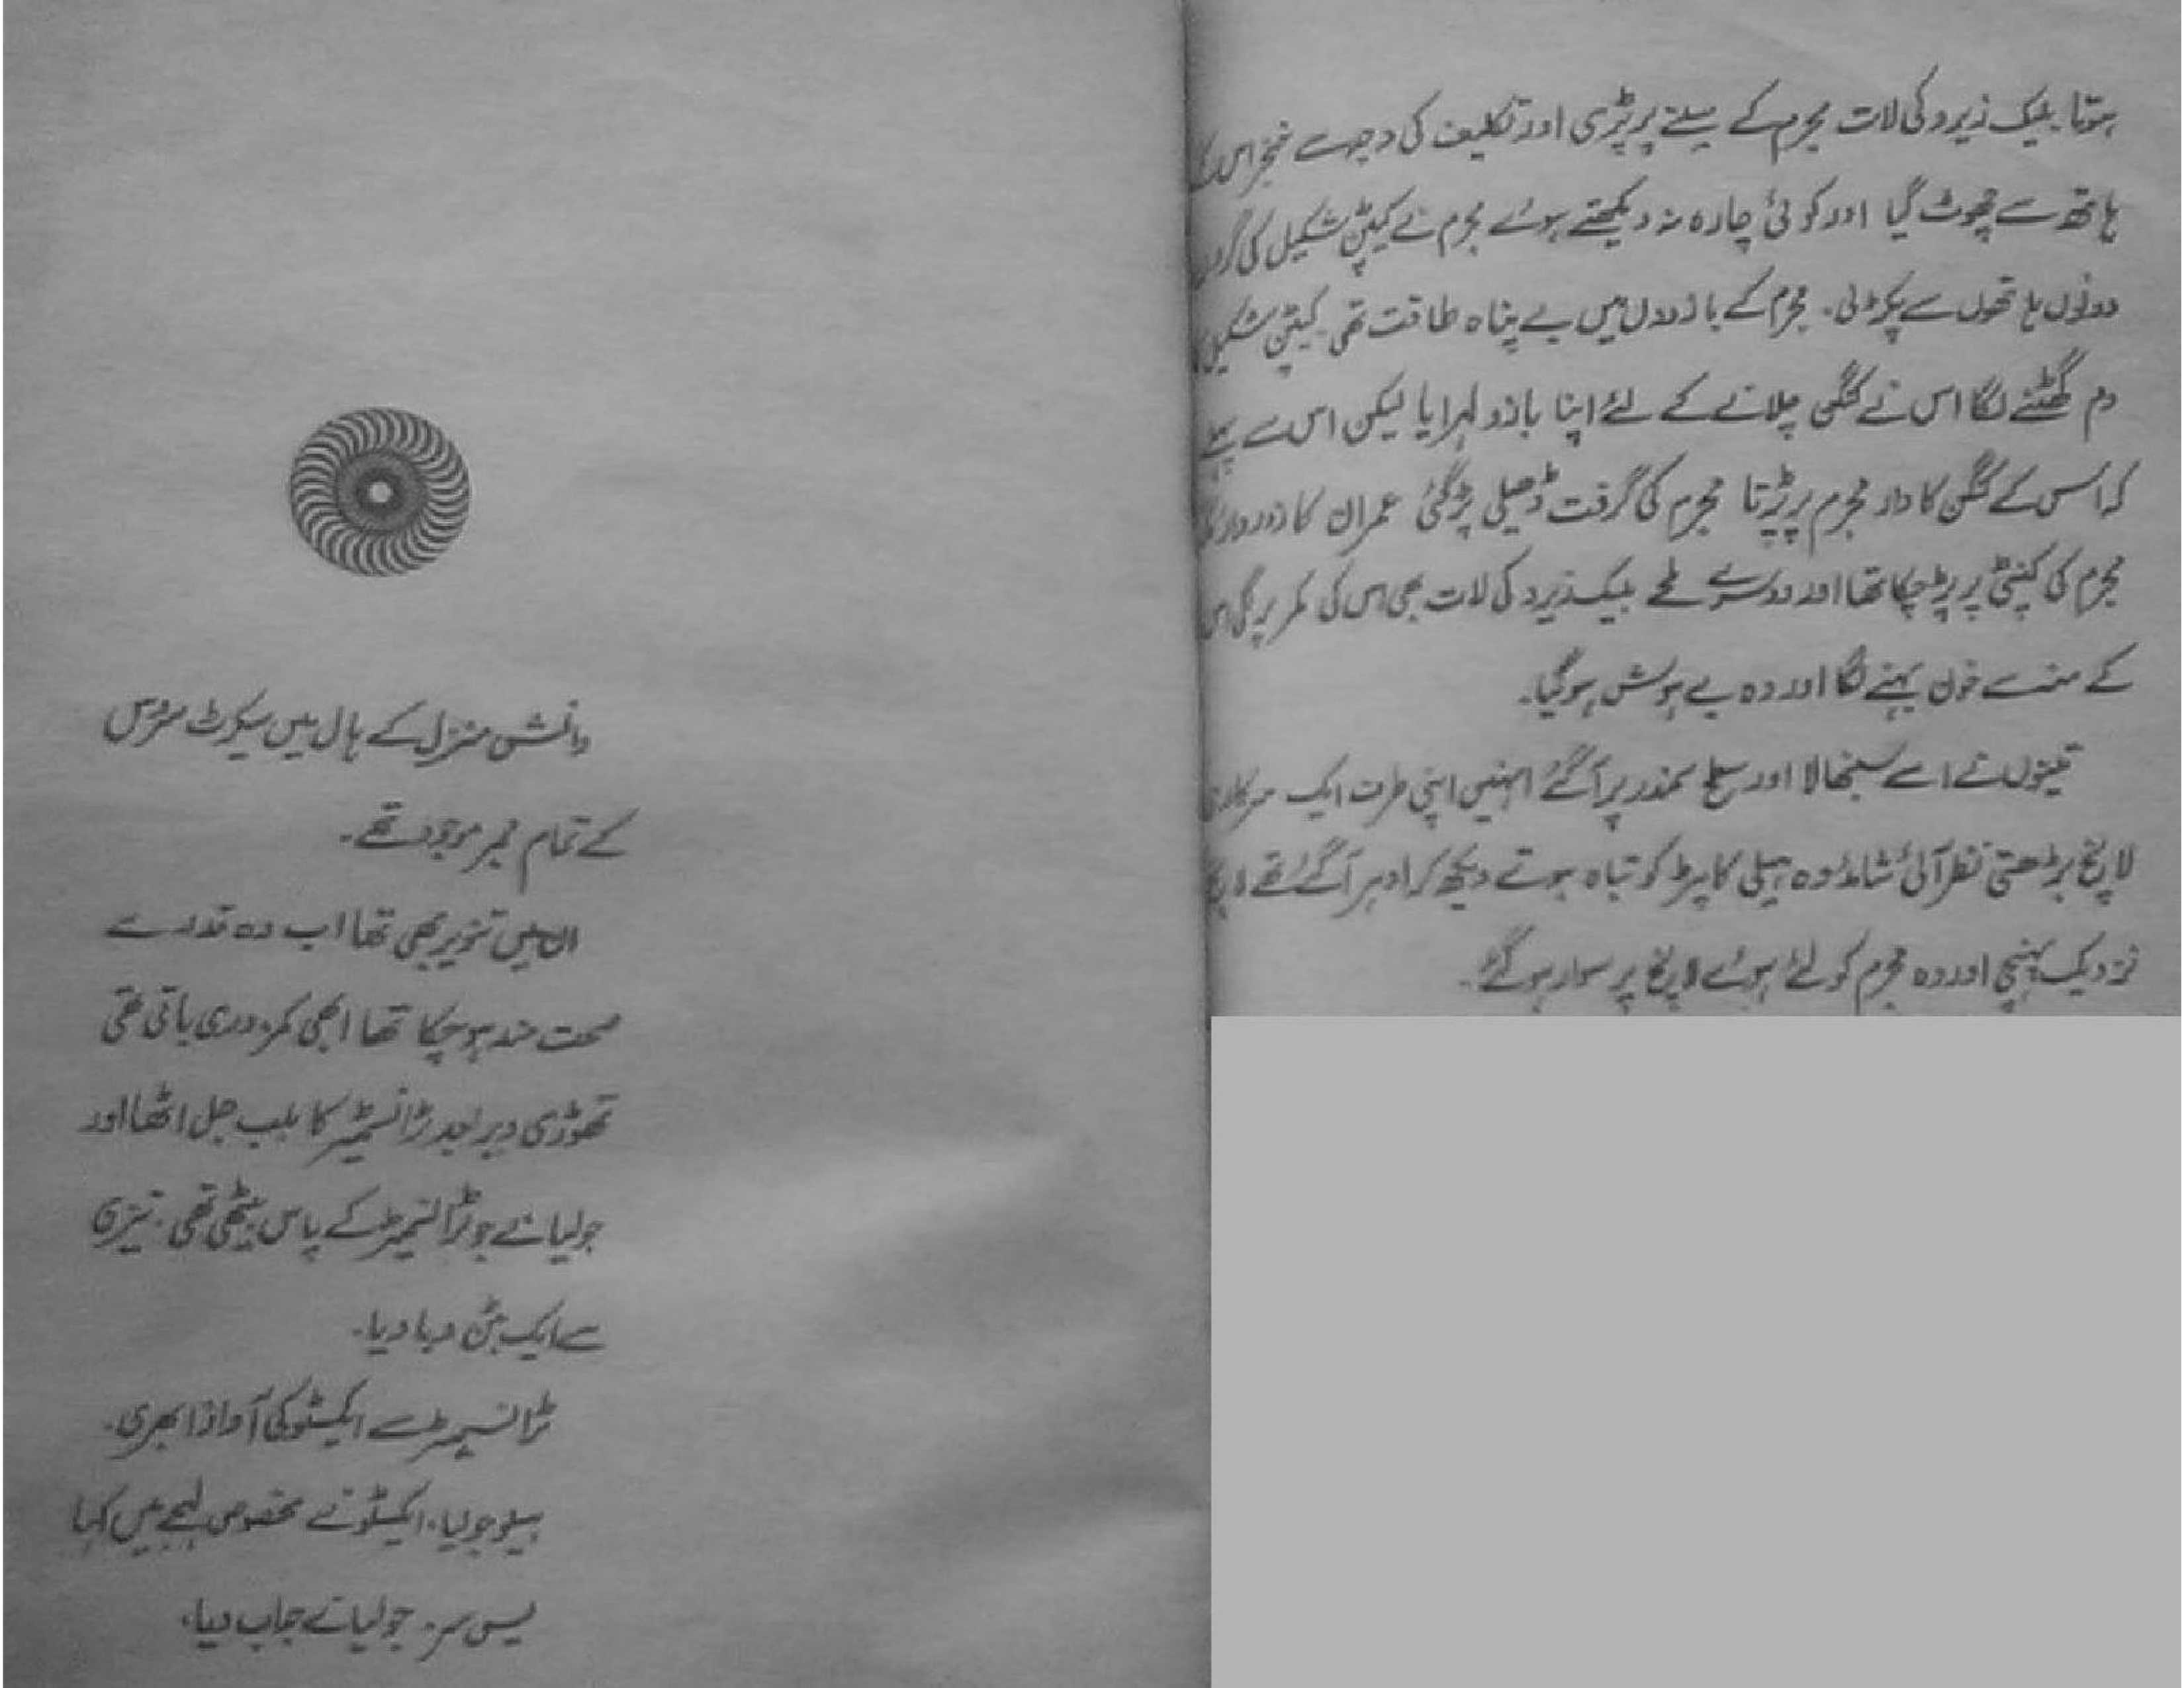 ہوتا بلیک زیرو کی لات مجرم کے سینے پر پڑی اور تکلیف کی وجہ سے خنجر اس کے
ہاتھ سے چھوٹ گیا اور کوئی چارہ نہ دیکھتے ہوئے مجرم نے کیپٹن شکیل کی
دونوں ہاتھوں سے پکڑ لی۔ مجرم کے بازوؤں میں بے پناہ طاقت تھی۔ کیپٹن شکیل کا
دم گھٹنے لگا اس نے گنگھی چلانے کے لئے اپنا بازو لہرایا لیکن اس سے پہلے
کہ اس کے کا وار مجرم پر پڑتا مجرم کی گرفت ڈھیلی پڑ گئی عمران کا زور دار
مجرم کی کنپٹی پر پڑ چکا تھا اور دوسرے لمحے بلیک زیرو کی لات بھی اس کی کمر پر لگی اس
کے منہ سے خون بہنے لگا اور وہ بے ہوش ہو گیا۔
تینوں نے اسے سنبھالا اور سطح سمندر پر آ گئے انہیں اپنی طرف ایک سرکاری
لانچ بڑھتی نظر آئی شائد وہ ہیلی کاپٹر کو تباہ ہوتے دیکھ کر ادھر آ گئے تھے لانچ
نزدیک پہنچی اور وہ مجرم کو لئے ہوئے لانچ پر سوار ہو گئے۔
دانش منزل کے ہال میں سیکرٹ سروس
کے تمام ممبر موجود تھے۔
ان میں تنویر بھی تھا اب وہ قدرے
صحت مند ہو چکا تھا ابھی کمزوری باقی تھی
تھوڑی دیر بعد ٹرانسمیٹر کا بلب جل اٹھا اور
جولیا نے جو ٹرانسمیٹر کے پاس بیٹھی تھی۔ تیزی
سے ایک بٹن دبا دیا۔
ٹرانسمیٹر سے ایکسٹو کی آواز ابھری۔
ہیلو جولیا۔ ایکسٹو نے مخصوص لہجے میں کہا
یس سر۔ جولیا نے جواب دیا۔